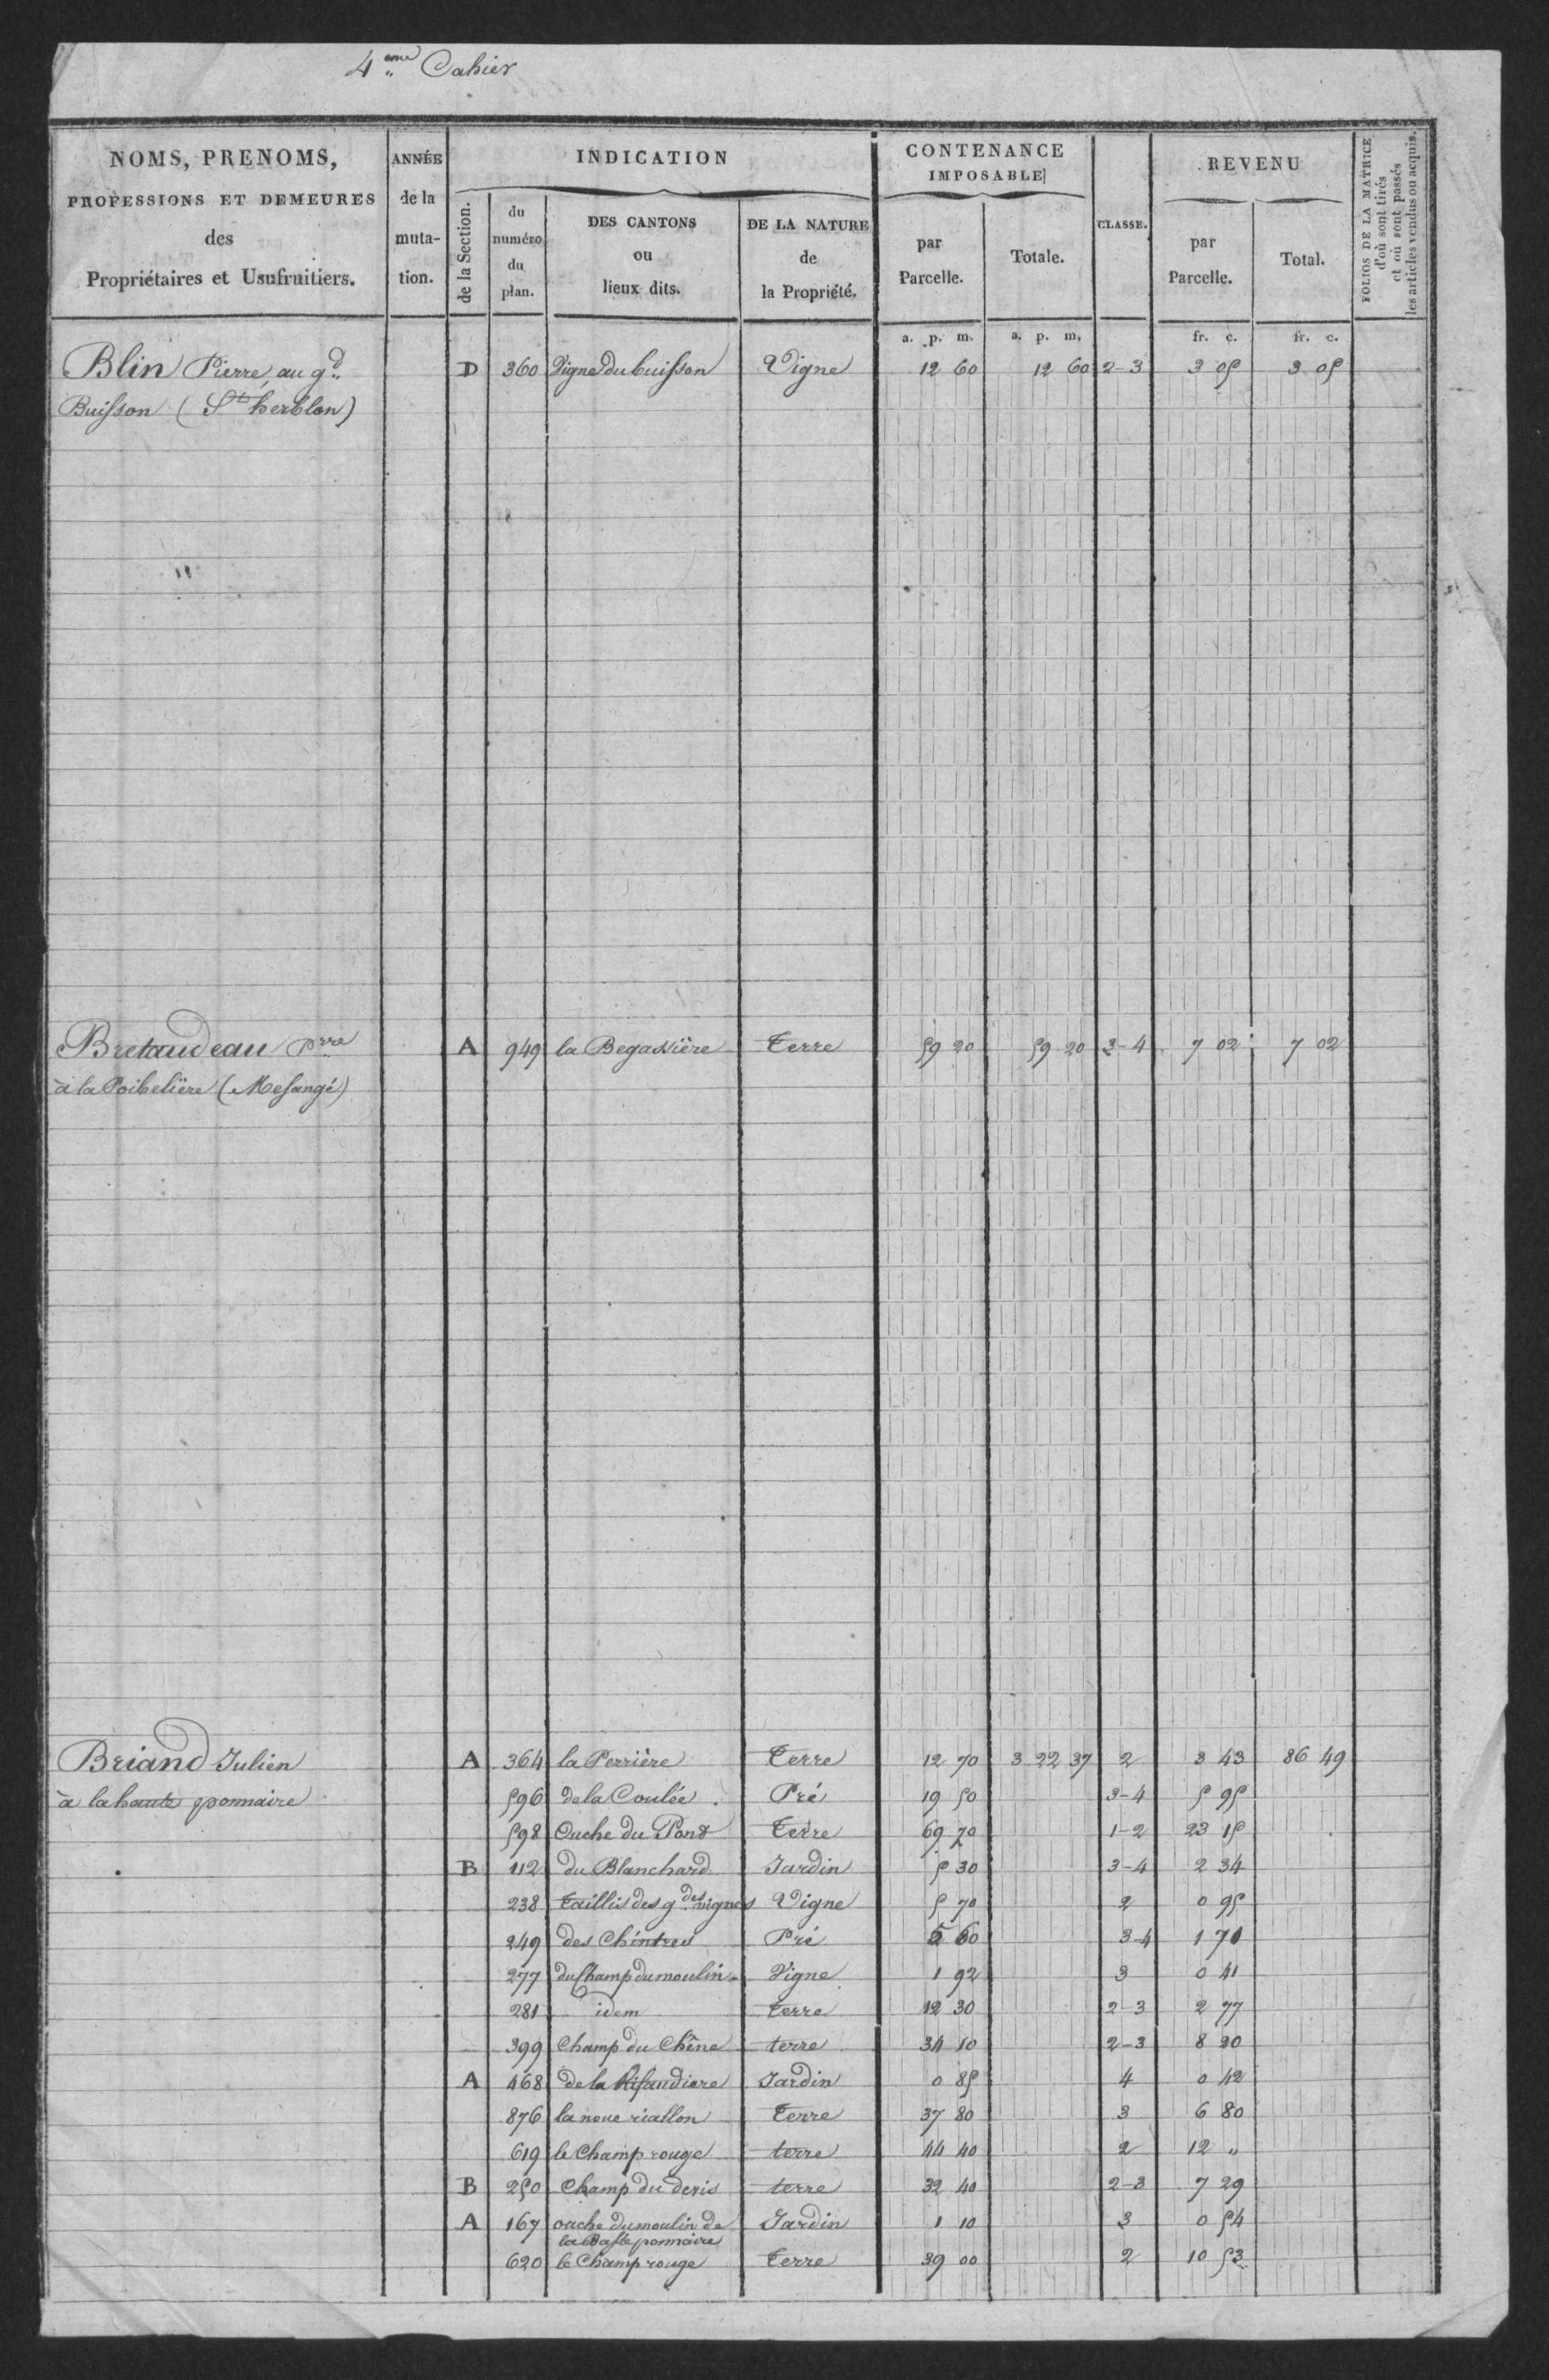 4.eme Cahier
NOMS, PRENOMS,
PROFESSIONS ET DEMEURES
des
Propriétaires et Usufruitiers.
ANNÉE
de la
muta-
tion.
INDICATION
de la Section.
du
numéro
du
plan.
DES CANTONS
ou
lieux dits.
DE LA NATURE
de
la Propriété.
CONTENANCE
IMPOSABLE
par
Parcelle.
Totale.
CLASSE.
REVENU
par
Parcelle.
Total.
FOLIOS DE LA MATRICE
d'où sont tirés
et où sont passés
les articles vendus ou acquis.
a. p. m. a. p. m. fr. c. fr. c.
Blin Pierre, au gd. D 360 Vigne du buisson Vigne 12 60 12 60 2-3 3 05 3 05
Buisson (St herblon)
Bretaudeau Prre A 949 la Begassière Terre 59 20 59 20 3-4 7 02 7 02
à la Poibelière (Mesangé)
Briand Julien A 364 la Perrière Terre 12 70 3 22 37 2 3 43 86 49
à la haute ponnaire 596 de la Coulée Pré 19 50 3-4 5 95
598 Ouche du Pont Terre 69 70 1-2 23 15
B 112 du Blanchard Jardin 5 30 3-4 2 34
238 taillis des gdes vignes Vigne 5 70 2 0 95
249 des Chintres Pré 5 60 3-4 1 71
277 du Champ du moulin Vigne 1 92 3 0 41
281 idem terre 12 30 2-3 2 77
399 Champ du Chêne terre 34 10 2-3 8 20
A 468 de la Jardin 0 85 4 0 42
876 la noue riallon Terre 37 80 3 6 80
619 le Champ rouge terre 44 40 2 12 "
B 250 Champ du deris terre 32 40 2-3 7 29
A 167 ouche du moulin de Jardin 1 10 3 0 54
la Basse ponnaire
620 le Champ rouge Terre 39 00 2 10 53